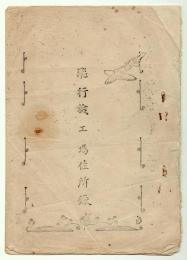 飛行機工場住所録